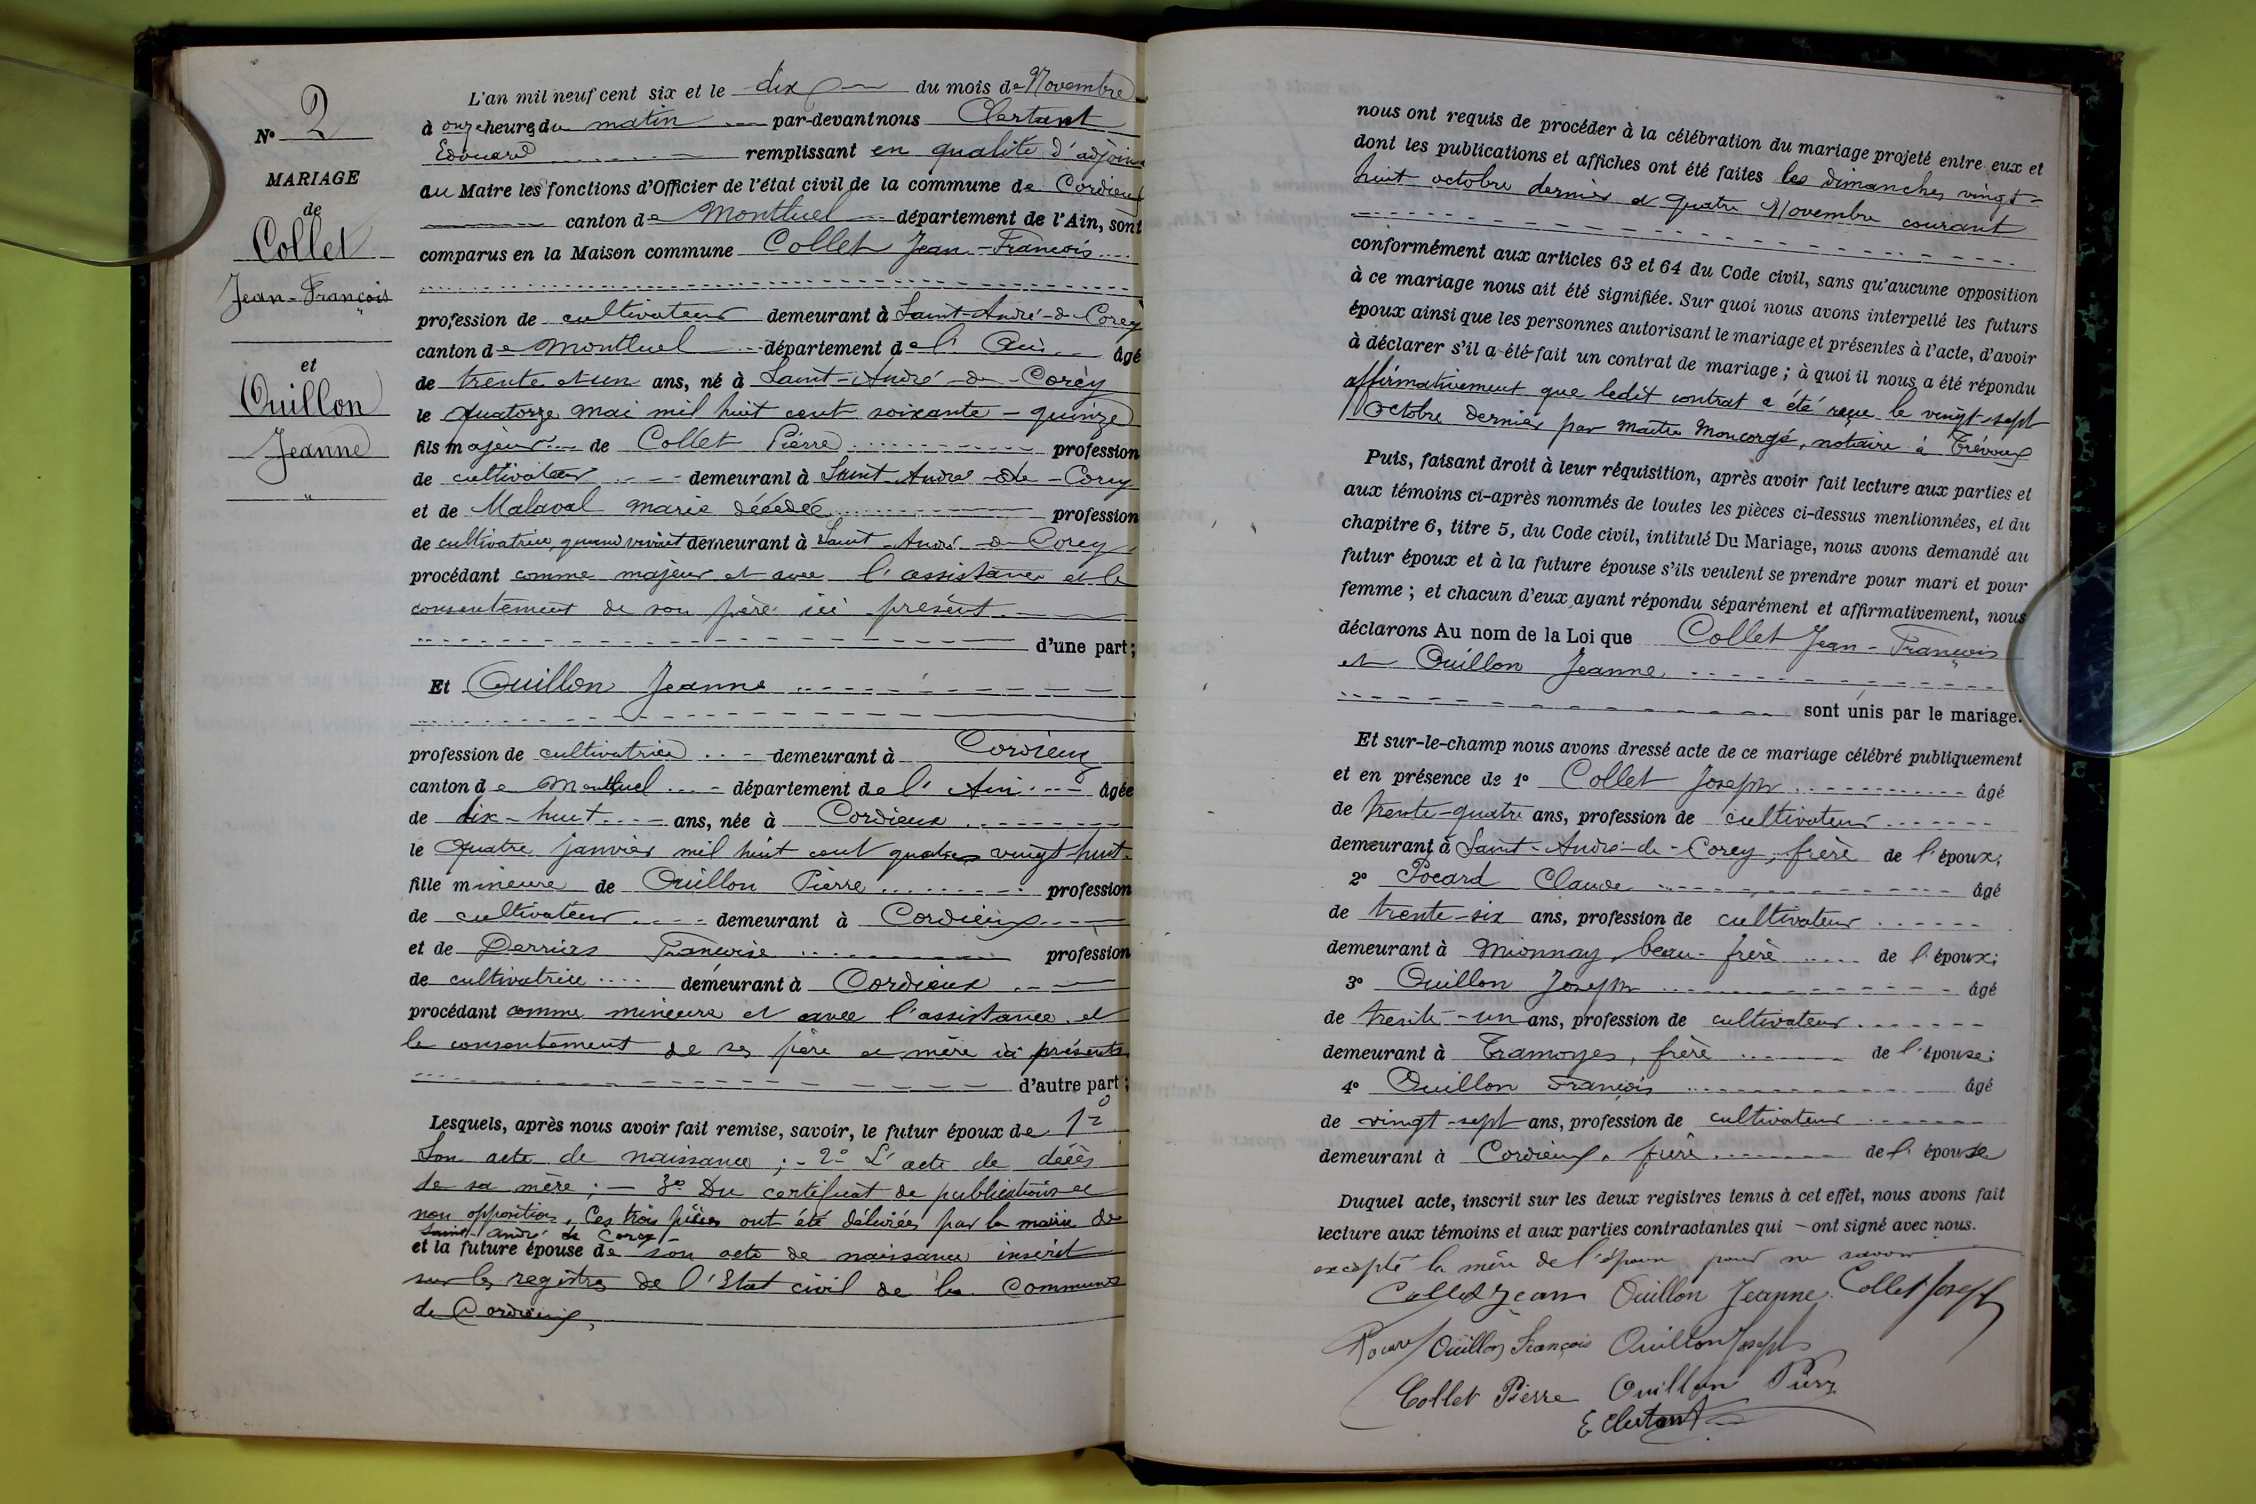 N° 2
MARIAGE
de
Collet
Jean-François
et
Ouillon
Jeanne
L'an mil neuf cent six et le dix du mois de Novembre
à onze heures du matin par-devant nous Clertant
Edouard remplissant en qualité d'adjoint
au Maire les fonctions d'Officier de l'état civil de la commune de Cordieux
canton de Montluel département de l'Ain, sont
comparus en la Maison commune Collet Jean-François
profession de cultivateur demeurant à Saint-André-de-Corcy
canton de Montluel département de l'Ain âgé
de trente et un ans, né à Saint-André-de-Corcy
le quatorze mai mil huit cent soixante-quinze
fils majeur de Collet Pierre profession
de cultivateur demeurant à Saint-André-de-Corcy
et de Malaval Marie décédée profession
de cultivatrice, quand vivait demeurant à Saint-André-de-Corcy
procédant comme majeur et avec l'assistance et le
consentement de son père ici présent
d'une part;
Et Ouillon Jeanne
profession de cultivatrice demeurant à Cordieux
canton de Montluel département de l'Ain âgée
de dix-huit ans, née à Cordieux
le quatre janvier mil huit cent quatre vingt huit
fille mineure de Ouillon Pierre profession
de cultivateur demeurant à Cordieux
et de Perrier Françoise profession
de cultivatrice demeurant à Cordieux
procédant comme mineure et avec l'assistance et
le consentement de ses père et mère ici présents
d'autre part;
Lesquels, après nous avoir fait remise, savoir, le futur époux de 1°
Son acte de naissance; - 2° L'acte de décès
de sa mère; - 3° Du certificat de publications et
non opposition, Ces trois pièces ont été délivrées par la mairie de
Saint-André de Corcy
et la future épouse de son acte de naissance inscrit
sur les registres de l'Etat civil de la commune
de Cordieux,
nous ont requis de procéder à la célébration du mariage projeté entre eux et
dont les publications et affiches ont été faites les dimanches vingt-
huit octobre dernier et quatre Novembre courant
conformément aux articles 63 et 64 du Code civil, sans qu'aucune opposition
à ce mariage nous ait été signifiée. Sur quoi nous avons interpellé les futurs
époux ainsi que les personnes autorisant le mariage et présentes à l'acte, d'avoir
à déclarer s'il a été fait un contrat de mariage; à quoi il nous a été répondu
affirmativement que ledit contrat a été reçu le vingt-sept
Octobre dernier par Maître Moncorgé, notaire à Trévoux
Puis, faisant droit à leur réquisition, après avoir fait lecture aux parties et
aux témoins ci-après nommés de toutes les pièces ci-dessus mentionnées, et du
chapitre 6, titre 5, du Code civil, intitulé Du Mariage, nous avons demandé au
futur époux et à la future épouse s'ils veulent se prendre pour mari et pour
femme; et chacun d'eux ayant répondu séparément et affirmativement, nous
déclarons Au nom de la Loi que Collet Jean-François
et Ouillon Jeanne
sont unis par le mariage.
Et sur-le-champ nous avons dressé acte de ce mariage célébré publiquement
et en présence de 1° Collet Joseph âgé
de trente-quatre ans, profession de cultivateur
demeurant à Saint-André-de-Corcy, frère de l'époux;
2° Pocard Claude âgé
de trente-six ans, profession de cultivateur
demeurant à Mionnay, beau-frère de l'époux;
3° Ouillon Joseph âgé
de trente-un ans, profession de cultivateur
demeurant à Tramoyes, frère de l'épouse;
4° Ouillon François âgé
de vingt-sept ans, profession de cultivateur
demeurant à Cordieux, frère de l'épouse
Duquel acte, inscrit sur les deux registres tenus à cet effet, nous avons fait
lecture aux témoins et aux parties contractantes qui ont signé avec nous.
excepté la mère de l'épouse pour ne savoir
Collet Jean Ouillon Jeanne Collet Joseph
Pocard Ouillon François Ouillon Joseph
Collet Pierre Ouillon Pierre
E Clertant